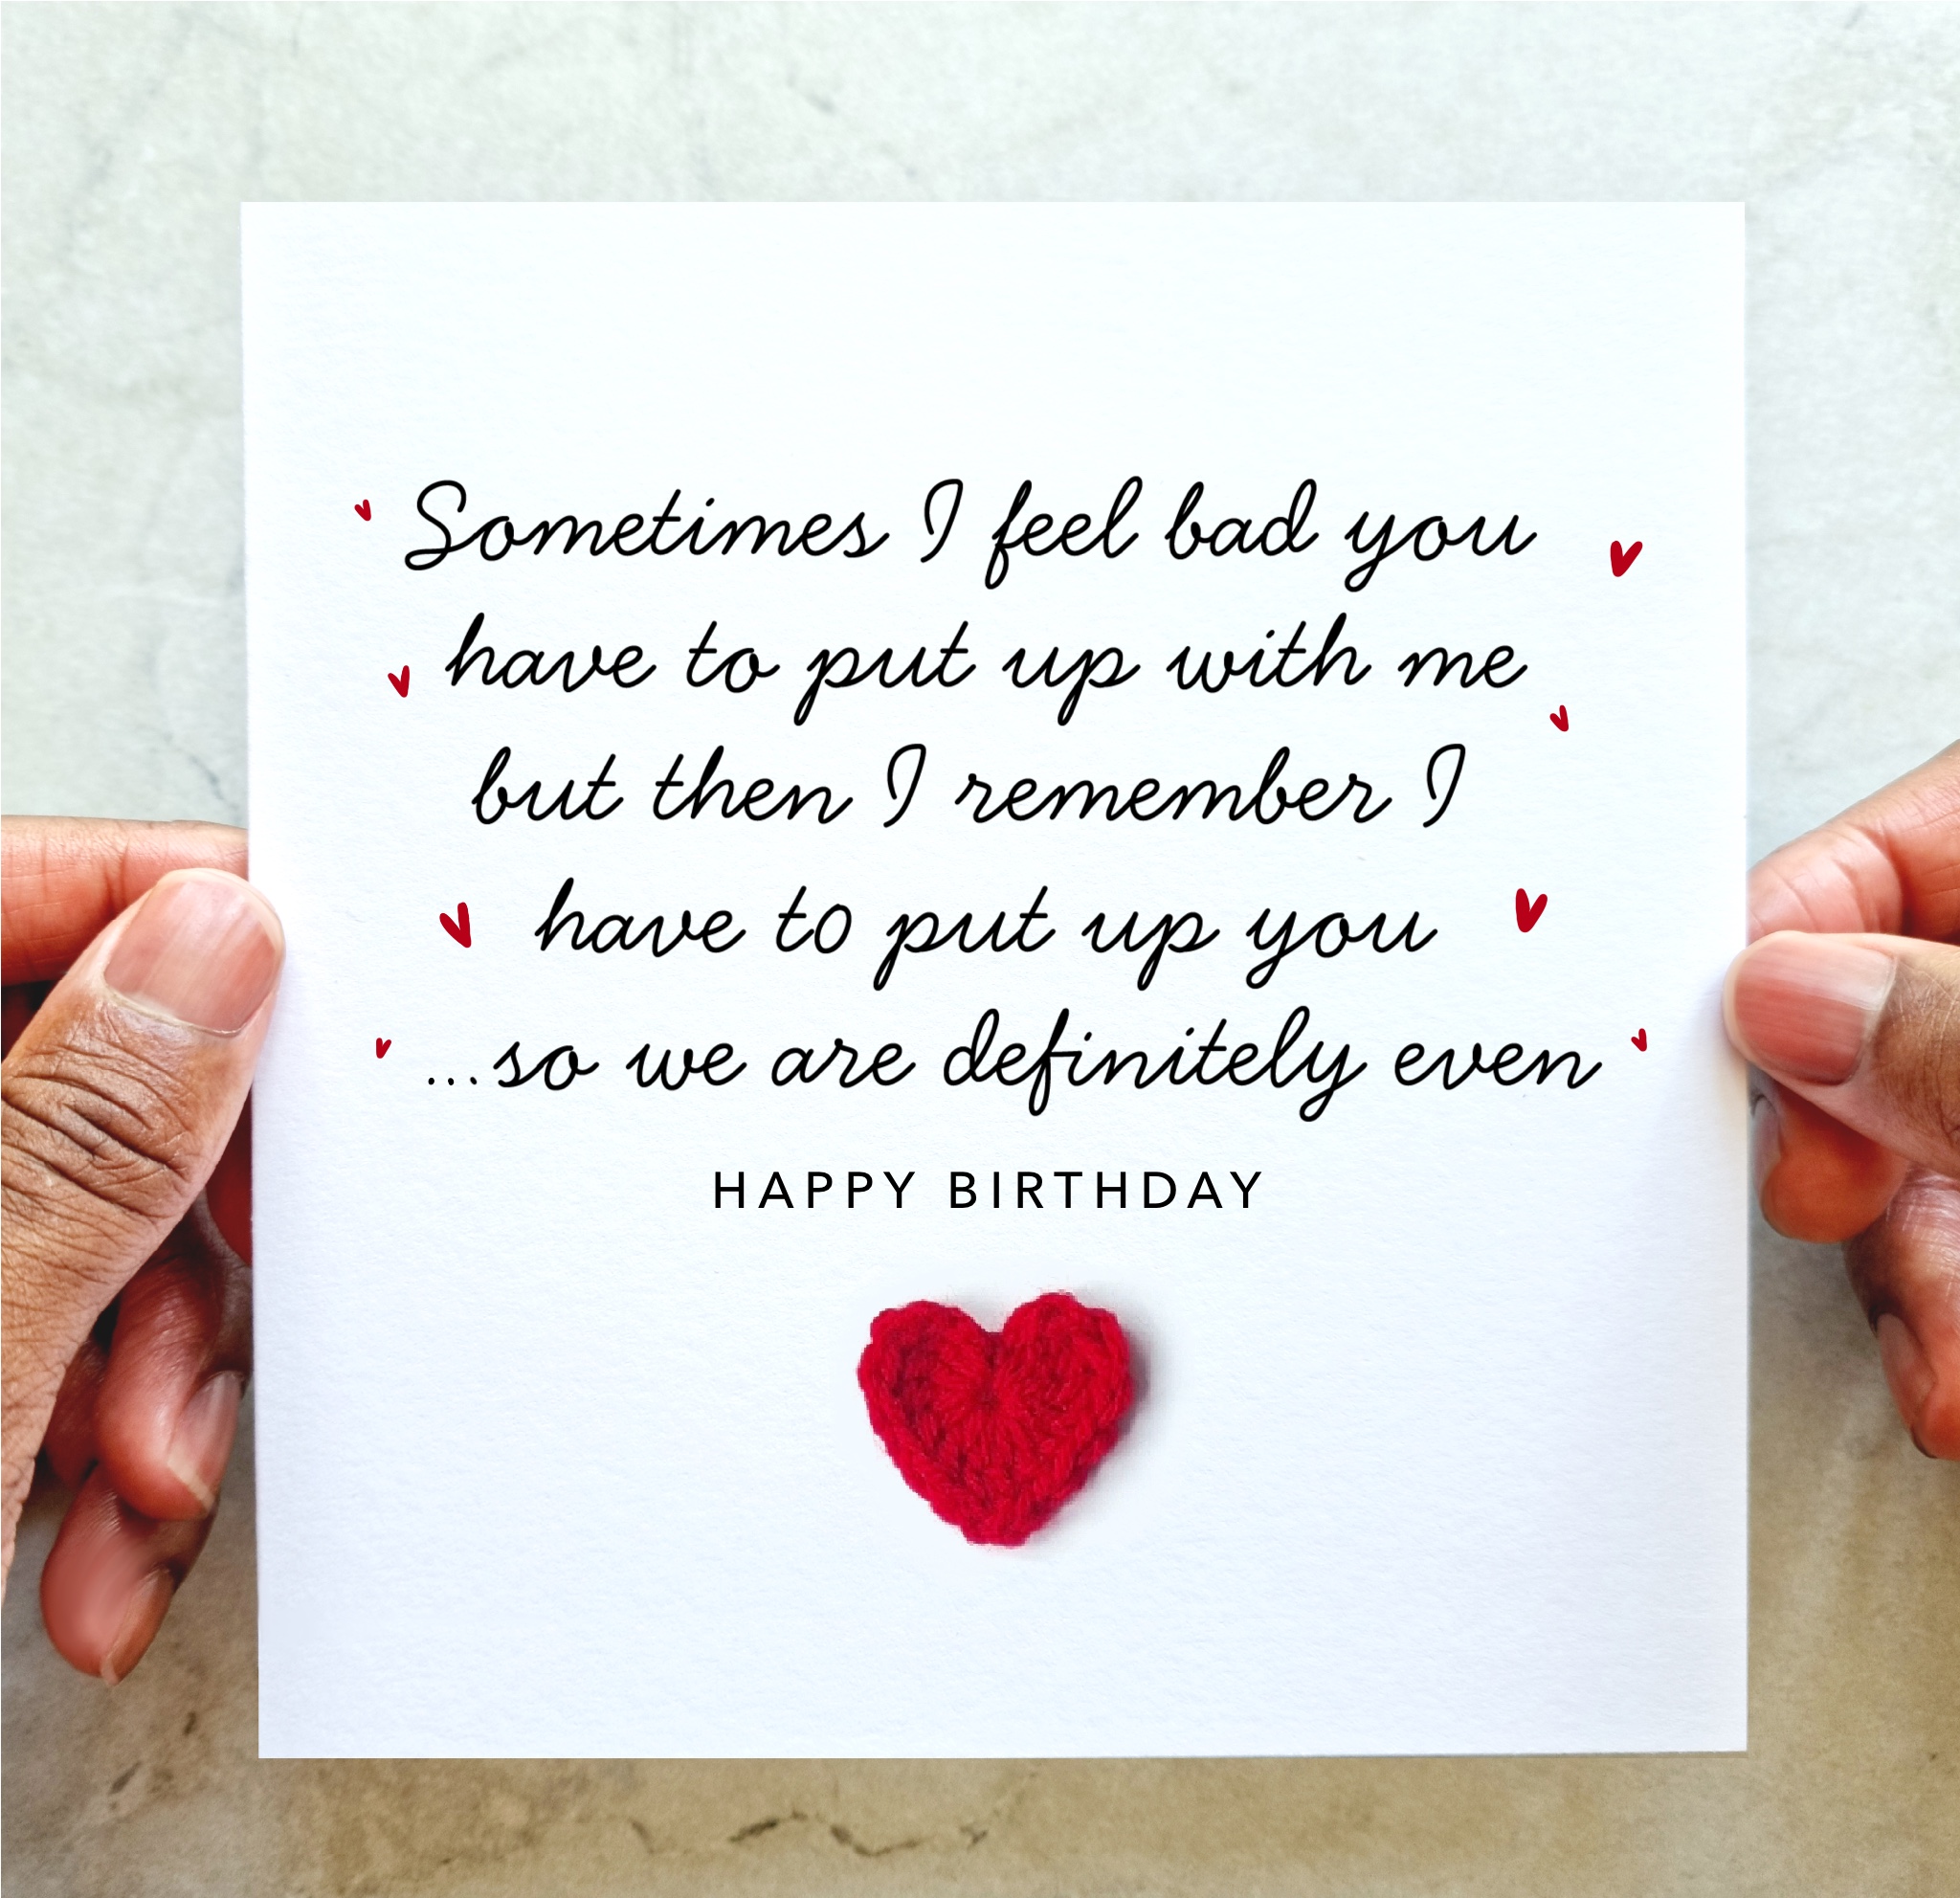 Sometimes I feel bad you
have to put up with me
but then I remember I
have to put up you
...so we are definitely even
HAPPY BIRTHDAY